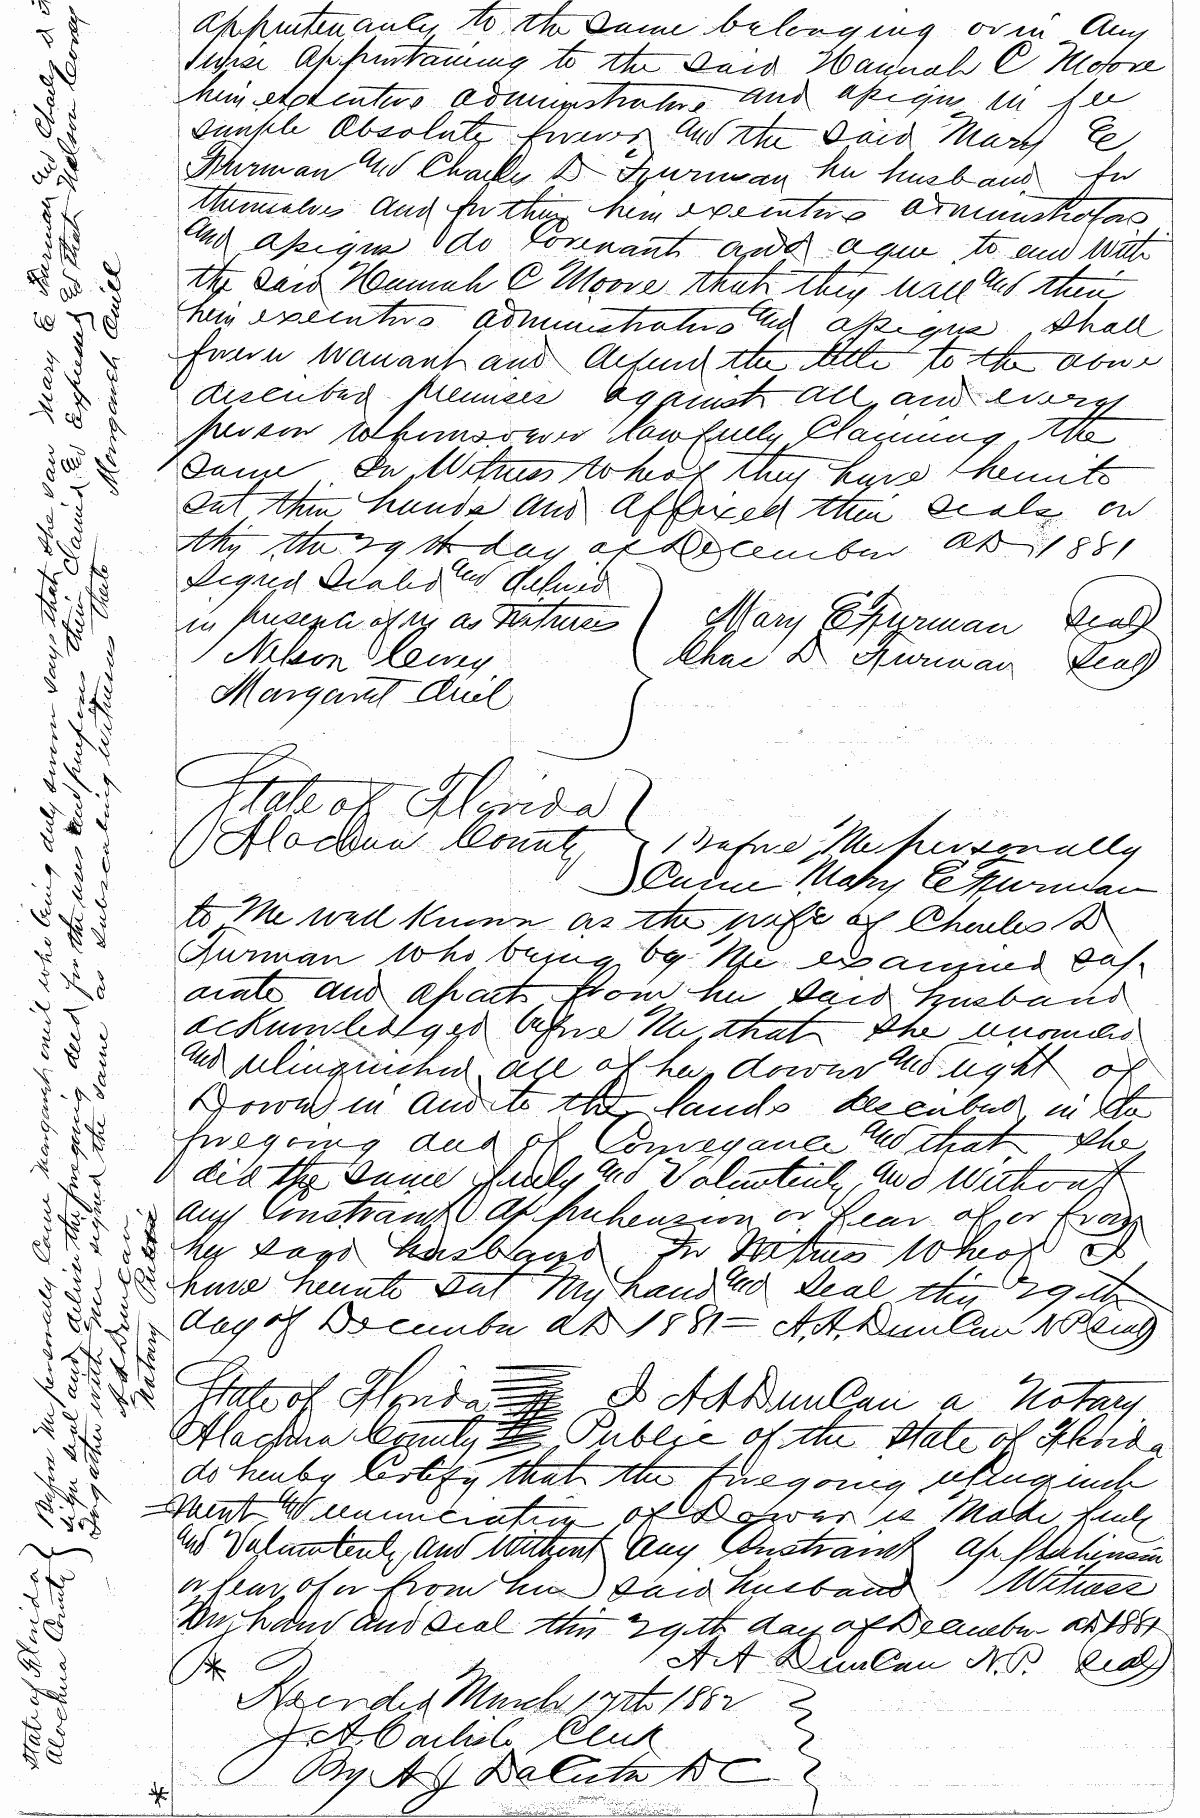 appurtenances to the same belonging or in any
wise appertaining to the said Hannah C Moore
heirs executors administrators and assigns in fee
simple absolute forever and the said Mary E
Furman and Charles D Furman her husband for
themselves and for their heirs executors administrators
and assigns do covenant and agree to and with
the said Hannah C Moore that they will and their
heirs executors administrators and assigns shall
forever warrant and defend the title to the above
described premises against all and every
person whomsoever lawfully claiming the
same In Witness whereof they have hereunto
set their hands and affixed their seals on
this the 29th day of December AD 1881
Signed Sealed and delivered
in presence of us as Witnesses
Nelson Covey
Margaret Quil
Mary E Furman Seal
Chas D Furman Seal
State of Florida
Alachua County
Before Me personally
Came Mary E Furman
to Me well known as the wife of Charles D
Furman who being by Me examined sep-
arate and apart from her said husband
acknowledged before Me that she renounced
and relinquished all of her dower and right of
Dower in and to the lands described in the
foregoing deed of Conveyance and that she
did the same freely and Voluntarily and Without
any Constraint apprehension or fear of or from
her said husband In Witness Whereof I
have hereunto set My hand and seal this 29th
day of December AD 1881 = A.A. Duncan NP Seal
State of Florida I A A Duncan a Notary
Alachua County Public of the State of Florida
do hereby Certify that the foregoing relinquish
=ment and renunciation of Dower is Made freely
and Voluntarily and Without any Constraint apprehension
or fear of or from her said husband Witness
my hand and seal this 29th day of December AD 1881
A A Duncan N.P. Seal
Recorded March 17th 1882
J A Carlisle Clerk
By A J DaCosta DC
State of Florida
Alachua County
Before me personally Came Margaret Quil who being duly sworn says that she saw Mary E Furman and Charles D
sign seal and deliver the foregoing deed for the uses and purposes therein Claimed &c Expressed and that Nelson Covey
together with me signed the same as subscribing witnesses thereto
Margaret Quill
A A Duncan
Notary Public